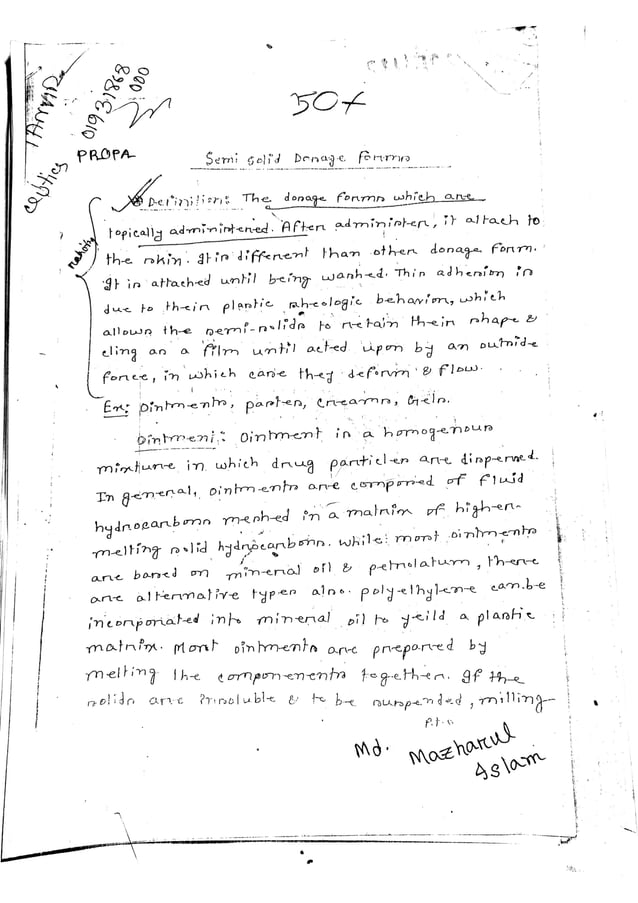 TANVIR
01931868
000
ceutics
50+
PROPA
Semi Solid Dosage Forms
Definition: The dosage forms which are
topically administered. After administer, it attach to
the skin. It is different than other dosage form.
It is attached until being washed. This adhesion is
due to their plastic rheologic behavior, which
allows the semi-solids to retain their shape &
cling as a film until acted upon by an outside
force, in which case they deform & flow.
Ex: Ointments, pastes, creams, Gels.
Ointment: Ointment is a homogenous
mixture in which drug particles are dispersed.
In general, ointments are composed of fluid
hydrocarbons meshed in a matrix of higher-
melting solid hydrocarbons. While most ointments
are based on mineral oil & petrolatum, there
are alternative types also. polyethylene can be
incorporated into mineral oil to yeild a plastic
matrix. Most ointments are prepared by
melting the componenents together. If the
solids are insoluble & to be suspended, milling
P.t.o
Md. Mazharul
Islam